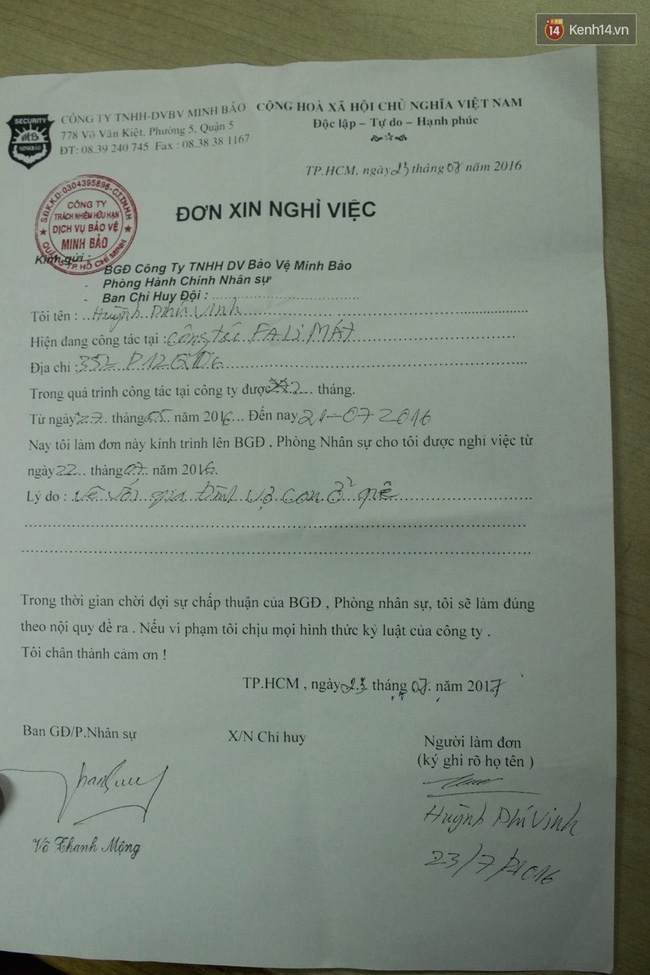 14 Kenh14.vn
SECURITY
MB
MINH BẢO
CÔNG TY TNHH-DVBV MINH BẢO
778 Võ Văn Kiệt, Phường 5, Quận 5
ĐT: 08.39 240 745 Fax : 08.38 38 1167
CỘNG HOÀ XÃ HỘI CHỦ NGHĨA VIỆT NAM
Độc lập – Tự do – Hạnh phúc
TP.HCM, ngày 23 tháng 07 năm 2016
S.ĐKKD:0304395898-C.T.T.N.H.H
CÔNG TY
TRÁCH NHIỆM HỮU HẠN
DỊCH VỤ BẢO VỆ
MINH BẢO
QUẬN 5 TP. HỒ CHÍ MINH
ĐƠN XIN NGHỈ VIỆC
Kính gửi :
BGĐ Công Ty TNHH DV Bảo Vệ Minh Bảo
- Phòng Hành Chính Nhân sự
- Ban Chỉ Huy Đội : ...........................
Tôi tên : ..Huỳnh Phí Vinh...........................
Hiện đang công tác tại : Công tác PALIMÁT
Địa chỉ : 352 P12 Q10
Trong quá trình công tác tại công ty được 2... tháng.
Từ ngày 27.. tháng 05 năm 2016... Đến nay 21-07 2016
Nay tôi làm đơn này kính trình lên BGĐ , Phòng Nhân sự cho tôi được nghỉ việc từ
ngày 22... tháng 07. năm 2016.
Lý do : về với gia đình vợ con ở quê
Trong thời gian chời đợi sự chấp thuận của BGĐ , Phòng nhân sự, tôi sẽ làm đúng
theo nội quy đề ra . Nếu vi phạm tôi chịu mọi hình thức kỷ luật của công ty .
Tôi chân thành cảm ơn !
TP.HCM , ngày 23. tháng 07. năm 2017
Ban GĐ/P.Nhân sự
X/N Chỉ huy
Người làm đơn
(ký ghi rõ họ tên )
Võ Thanh Mộng
Huỳnh Phí Vinh
23/7/2016